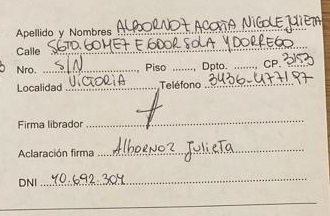 Apellido y Nombres ALBORNOZ ACOSTA NICOLE JULIETA
Calle SGTO. GOMEZ E GODOR SOLA Y DORREGO
Nro. S/N Piso Dpto. CP. 3153
Localidad VICTORIA Teléfono 3436-477197
Firma librador
Aclaración firma Albornoz Julieta
DNI 40.692.304